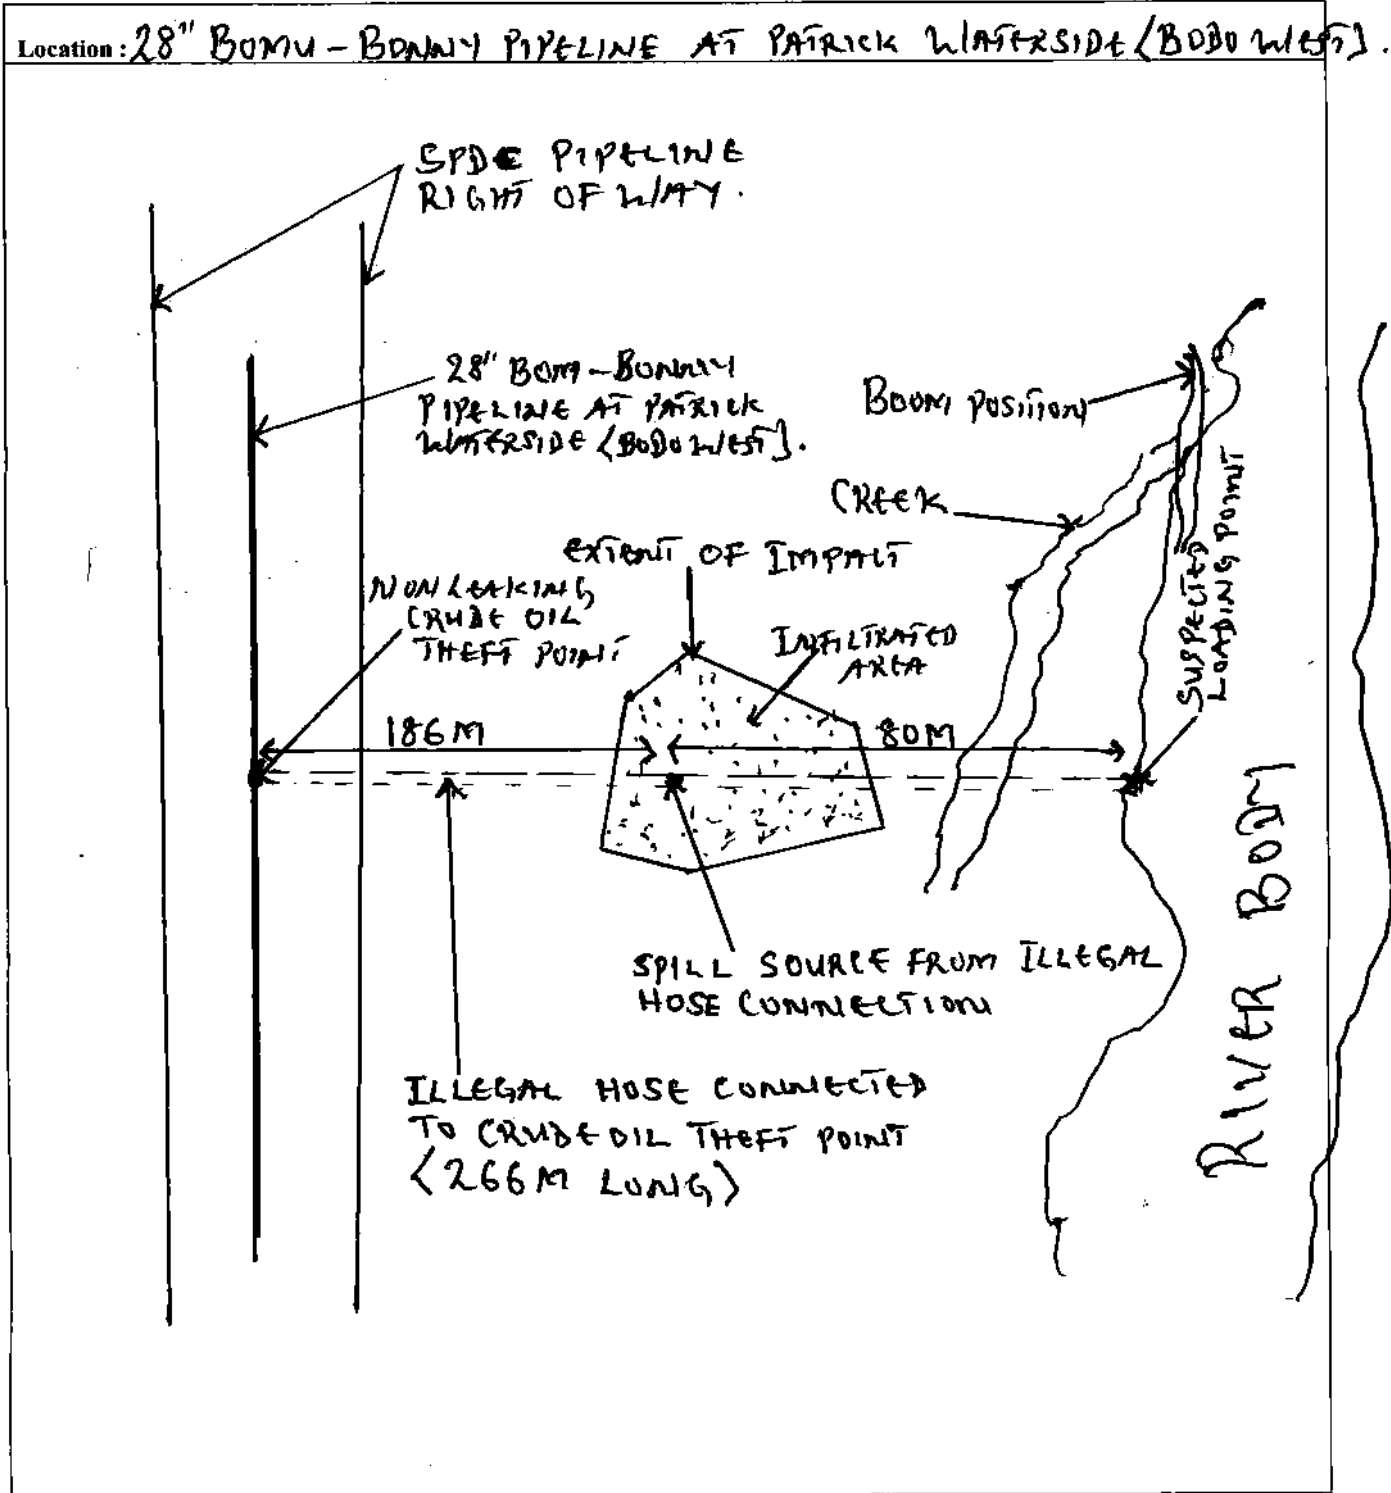 Location : 28" BOMU - BONNY PIPELINE AT PATRICK WATERSIDE (BODO WEST).
SPDC PIPELINE
RIGHT OF WAY.
28" BOM - BONNY
PIPELINE AT PATRICK
WATERSIDE (BODO WEST).
BOOM POSITION
CREEK
EXTENT OF IMPACT
NON LEAKING
CRUDE OIL
THEFT POINT
INFILTRATED
AREA
SUSPECTED
LOADING POINT
186M
80M
RIVER BODY
SPILL SOURCE FROM ILLEGAL
HOSE CONNECTION
ILLEGAL HOSE CONNECTED
TO CRUDE OIL THEFT POINT
(266M LONG)